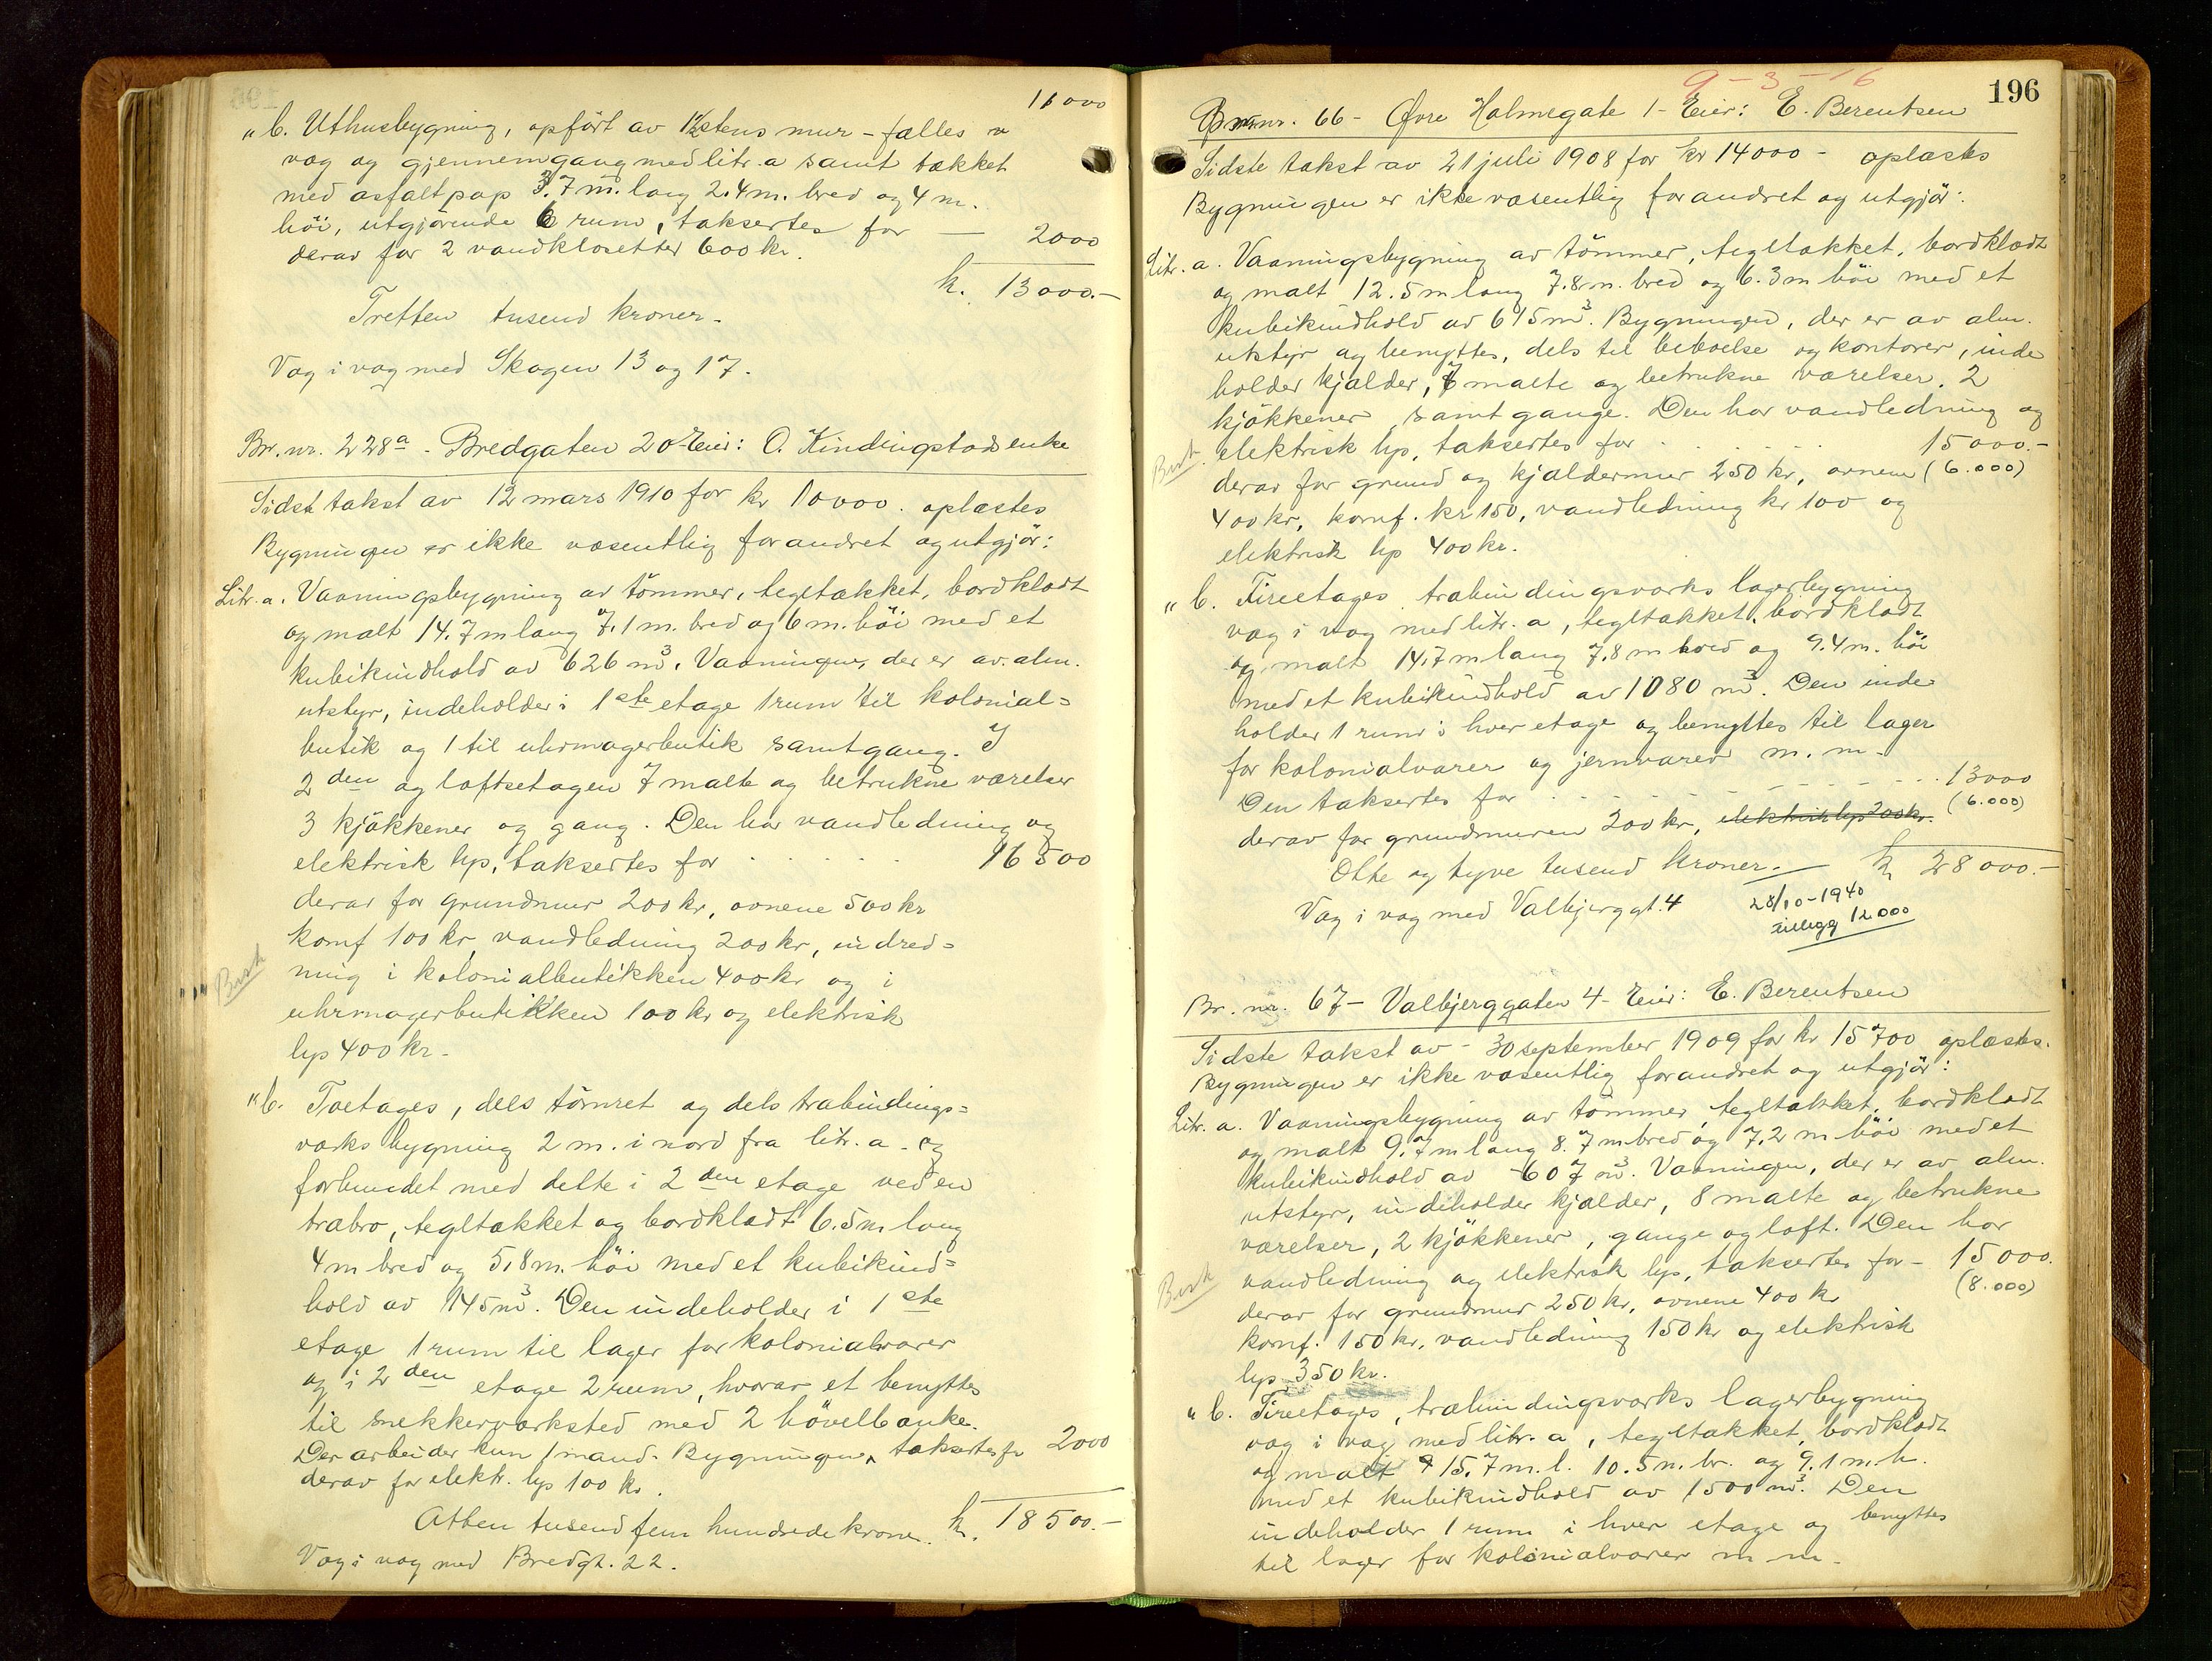 11000
" b. Uthusbygning, opført av 1½ stens mur - fælles
væg og gjennemgang med litr. a samt tækket
med asfaltpap 3.7 m. lang 2.4 m. bred og 4 m.
höi, utgjørende 6 rum, taksertes for — 2000
derav for 2 vandklosetter 600 kr.
kr. 13000.-
Tretten tusend kroner.
Væg i væg med Skagen 13 og 17.
Br. nr. 228a - Bredgaten 20 - Eier: O. Kindingstads enke
Sidst takst av 12 mars 1910 for kr 10000. oplæstes
Bygningen er ikke væsentlig forandret og utgjör:
Litr. a. Vaaningsbygning av tömmer, tegltækket, bordklædt
og malt 14.7 m lang 7.1 m. bred og 6 m. höi med et
kubikindhold av 626 m³. Vaaningen, der er av alm.
utstyr, indeholder i 1ste etage 1 rum til kolonial=
butik og 1 til uhrmagerbutik samt gang. I
2den og loftsetagen 7 malte og betrukne værelser
3 kjökkener og gang. Den har vandledning og
elektrisk lys, taksertes for . . . . . . 16500
derav for grundmur 200 kr, ovnene 500 kr
komf 100 kr, vandledning 200 kr, indred=
ning i kolonialbutikken 400 kr og i
uhrmagerbutikken 100 kr og elektrisk
lys 400 kr.
" b. Toetages, dels tömret og dels træbindings=
værks bygning 2 m. i nord fra litr. a. og
forbundet med dette i 2den etage ved en
træbro, tegltækket og bordklædt 6.5 m lang
4 m bred og 5,8 m. höi med et kubikind=
hold av 145 m³. Den indeholder i 1ste
etage 1 rum til lager for kolonialvarer
og i 2den etage 2 rum, hvorav et benyttes
til snekkerværksted med 2 hövelbænke.
Der arbeider kun 1 mand. Bygningen, taksertes for 2000
derav for elektr. lys 100 kr.
Atten tusend fem hundrede kroner. kr. 18500.-
Væg i væg med Bredgt. 22.
9-3-16
196
Br. nr. 66 - Øvre Holmegate 1 - Eier: E. Berentsen
Sidste takst av 21 juli 1908 for kr 14000 - oplæstes
Bygningen er ikke væsentlig forandret og utgjör:
Litr. a. Vaaningsbygning av tömmer, tegltækket, bordklædt
og malt 12.5 m lang 7.8 m. bred og 6.3 m höi med et
kubikindhold av 615 m³. Bygningen, der er av alm.
utstyr og benyttes, dels til beboelse og kontorer, inde
holder kjælder, 7 malte og betrukne værelser, 2
kjökkener, samt gange. Den har vandledning og
elektrisk lys, taksertes for . . . . . 15000.-
derav for grund og kjældermur 250 kr, ovnene (6.000)
400 kr, komf. kr 150, vandledning kr 100 og
elektrisk lys 400 kr.
" b. Fireetages træbindingsværks lagerbygning
væg i væg med litr. a, tegltækket, bordklædt
og malt 14,7 m lang 7,8 m bred og 9.4 m. höi
med et kubikindhold av 1080 m³. Den inde
holder 1 rum i hver etage og benyttes til lager
for kolonialvarer og jernvarer m. m.
Den taksertes for . . . . . . . 13000
derav for grundmuren 200 kr, elektrisk lys 200 kr. (6.000)
Otte og tyve tusend kroner. — kr 28000.-
Væg i væg med Valbjerggt. 4
28/10-1940
tillegg 12000
Br. nr. 67 - Valbjerggaten 4 - Eier: E. Berentsen
Sidste takst av - 30 september 1909 for kr 15700 oplæstes.
Bygningen er ikke væsentlig forandret og utgjör:
Litr. a. Vaaningsbygning av tömmer, tegltækket, bordklædt
og malt 9,7 m lang 8.7 m bred og 7,2 m höi med et
kubikindhold av 607 m³. Vaaningen, der er av alm.
utstyr, indeholder kjælder, 8 malte og betrukne
værelser, 2 kjökkener, gange og loft. Den har
vandledning og elektrisk lys, taksertes for - 15000.
derav for grundmur 250 kr, ovnene 400 kr (8.000)
komf. 150 kr, vandledning 150 kr og elektrisk
lys 350 kr.
" b. Fireetages, træbindingsværks lagerbygning
væg i væg med litr. a, tegltækket, bordklædt
og malt 15.7 m. l. 10.5 m. br. og 9.1 m. h.
med et kubikindhold av 1500 m³. Den
indeholder 1 rum i hver etage og benyttes
til lager for kolonialvarer m. m.